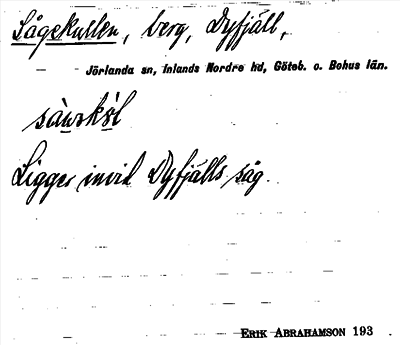 Sågekullen, berg, Dyfjäll,
Jörlanda sn, Inlands Nordre hd, Göteb. o. Bohus län.
Ligger invid Dyfjälls såg.
ERIK ABRAHAMSON 193 .